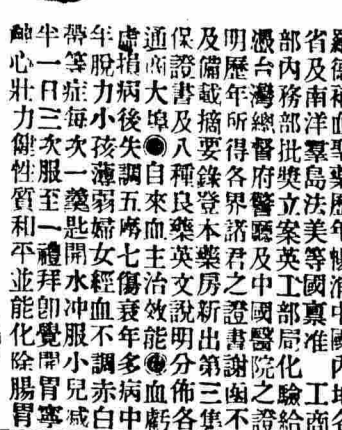 省及南洋羣島法美等國禀准 工商
部內務部批奬立案英工部局化驗給
憑台灣總督府警廳及中國醫院之證
明歷年所得各界諸君之證書謝函不
及備載摘要錄登本藥房新出第三集
保證書及八種良藥英文說明分佈各
通商大埠◉自來血主治效能◉血虧
虛損病後失調五嘮七傷衰年多病中
年脫力小孩薄弱婦女經血不調赤白
帶等症每次一羹匙開水冲服小兒减
半一日三次服至一禮拜卽覺開胃寧
神心壯力健性質和平並能化除腸胃